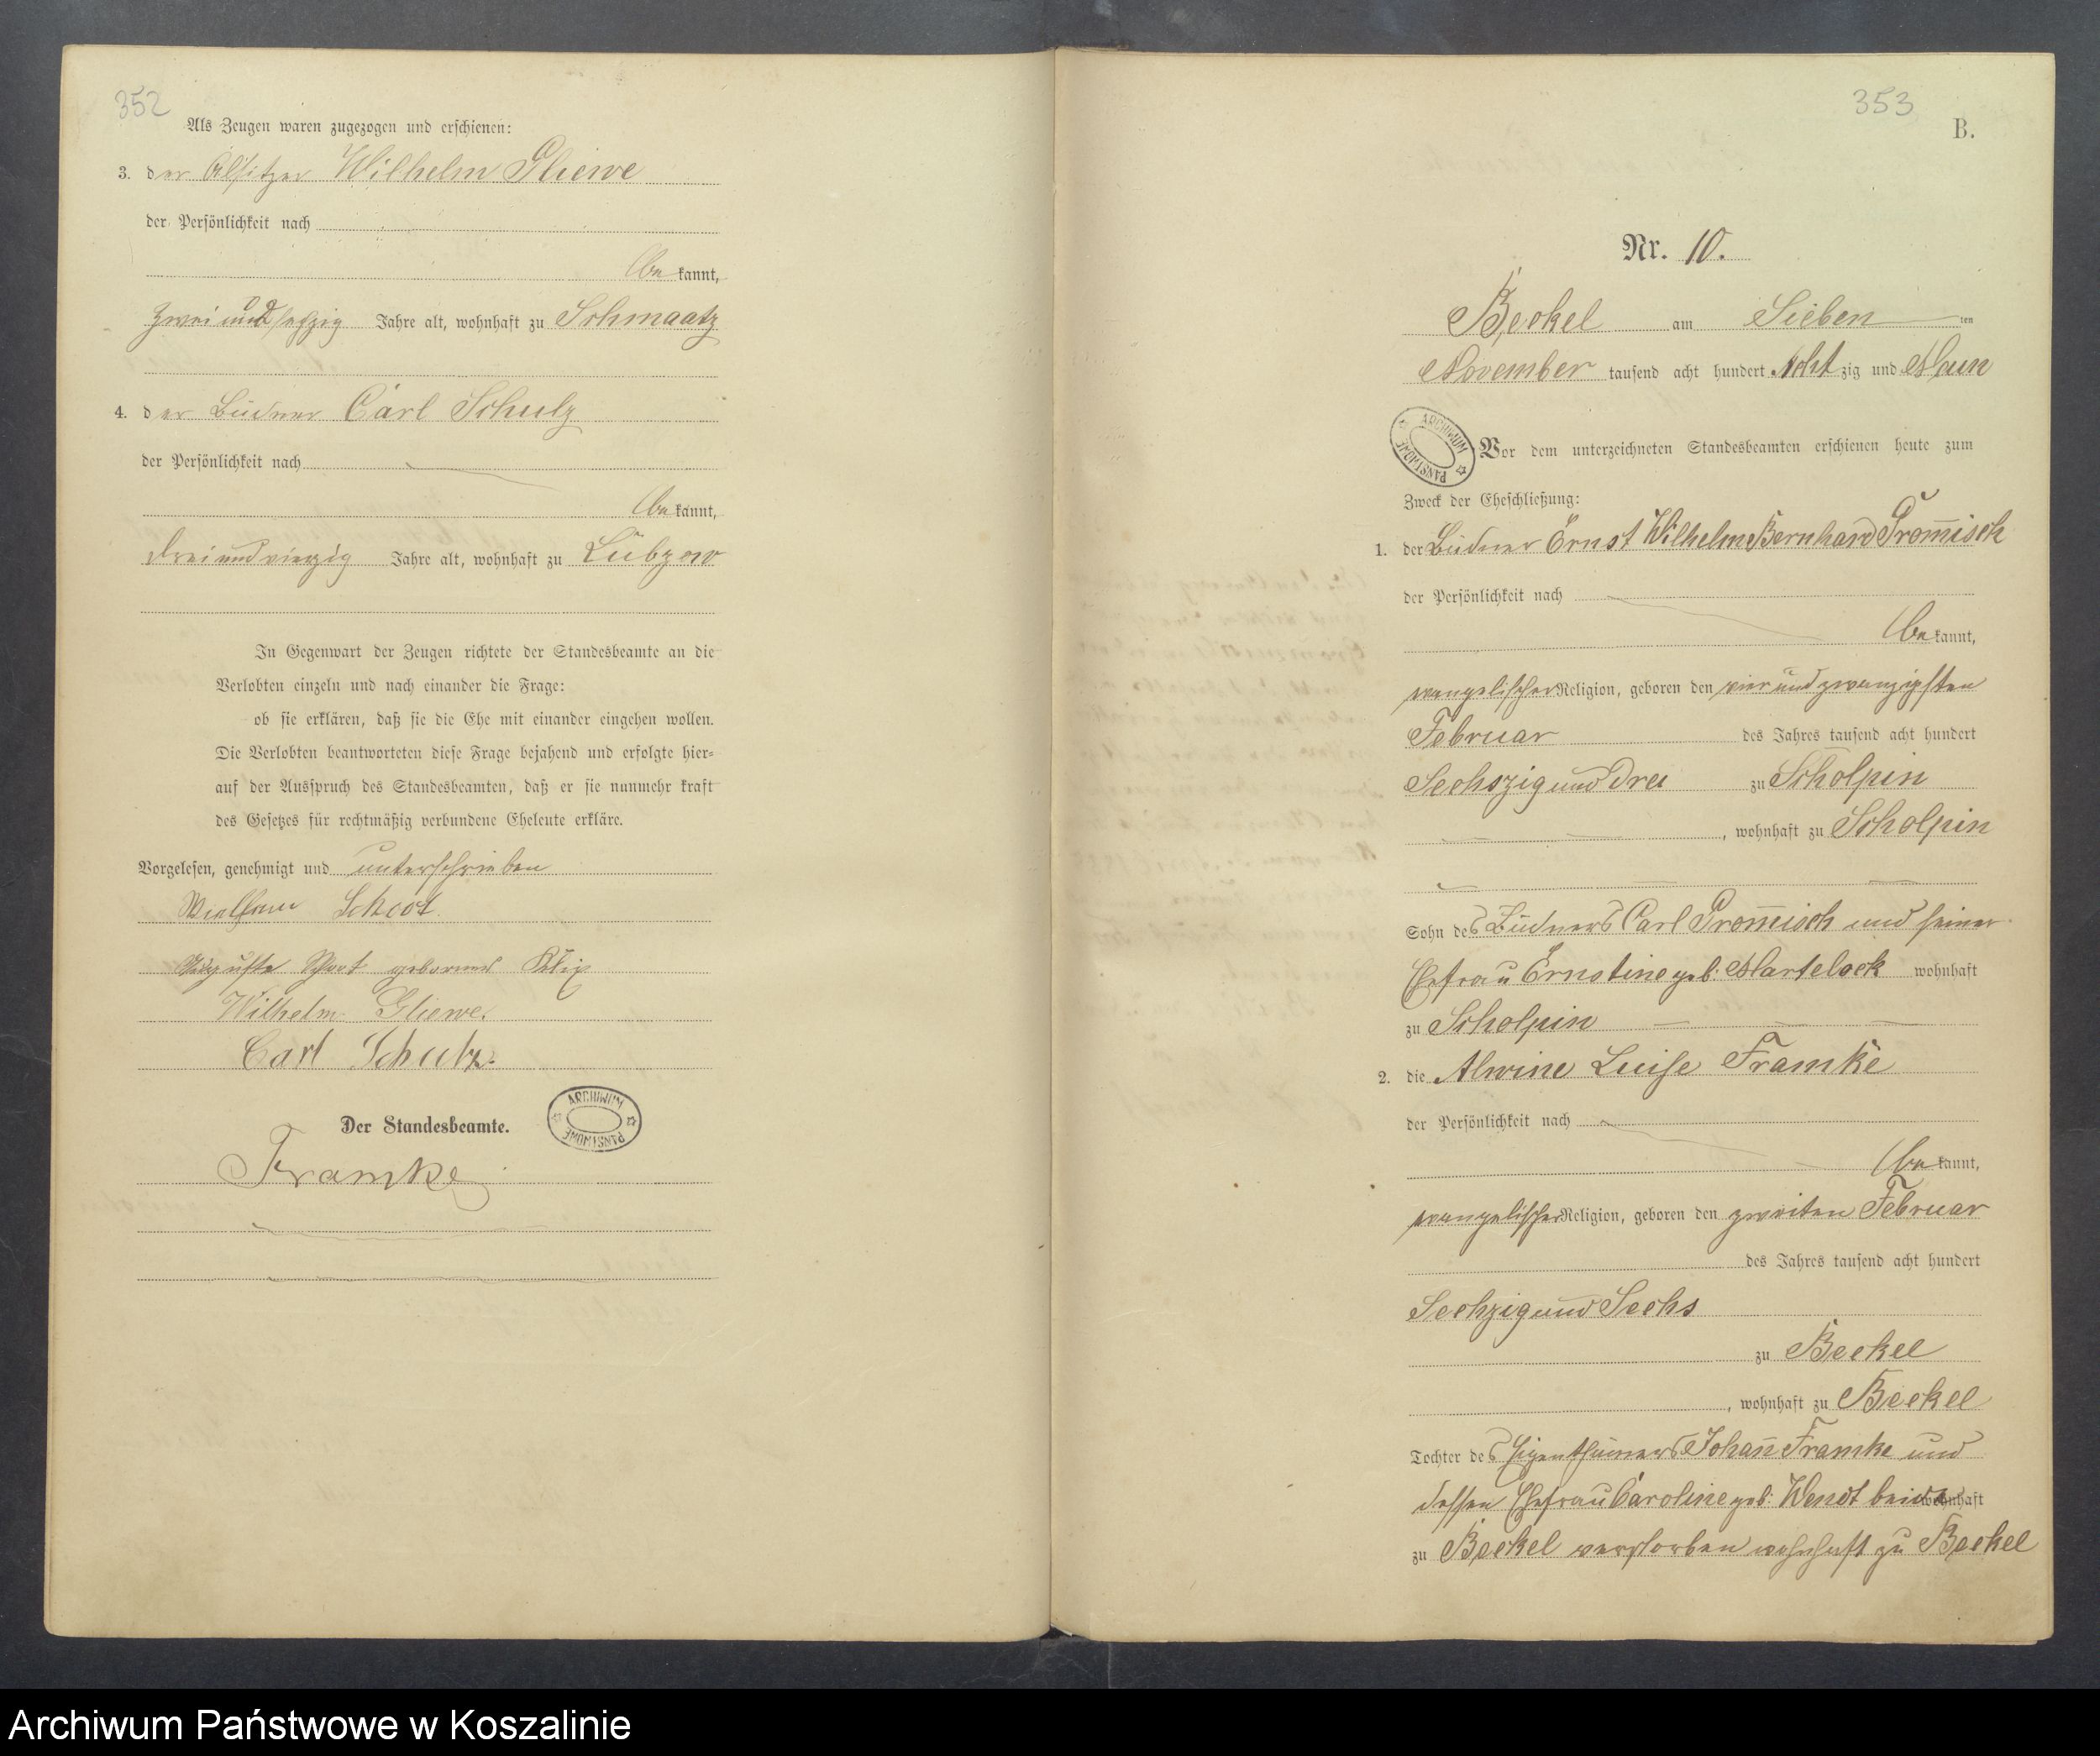 352
Als Zeugen waren zugezogen und erschienen:
3. der Altsitzer Wilhelm Gliewe
der Persönlichkeit nach
bekannt,
zwei und sechzig Jahre alt, wohnhaft zu Schmaatz
4. der Büdner Carl Schulz
der Persönlichkeit nach
bekannt,
drei und vierzig Jahre alt, wohnhaft zu Lübzow
In Gegenwart der Zeugen richtete der Standesbeamte an die
Verlobten einzeln und nach einander die Frage:
ob sie erklären, daß sie die Ehe mit einander eingehen wollen.
Die Verlobten beantworteten diese Frage bejahend und erfolgte hier-
auf der Ausspruch des Standesbeamten, daß er sie nunmehr kraft
des Gesetzes für rechtmäßig verbundene Eheleute erkläre.
Vorgelesen, genehmigt und unterschrieben
Schoot
Auguste Schoot geborene
Wilhelm Gliewe.
Carl Schulz.
Der Standesbeamte.
ARCHIWUM PAŃSTWOWE
Framke
353
B.
Nr. 10.
Beckel am Sieben ten
November tausend acht hundert Acht zig und Neun
ARCHIWUM PAŃSTWOWE
Vor dem unterzeichneten Standesbeamten erschienen heute zum
Zweck der Eheschließung:
1. der Büdner Ernst Wilhelm Bernhard Crom̅isch
der Persönlichkeit nach
bekannt,
evangelischer Religion, geboren den vier und zwanzigsten
Februar des Jahres tausend acht hundert
Sechszig und Drei zu Scholpin
, wohnhaft zu Scholpin
Sohn des Büdners Carl Crom̅isch und seiner
Ehefrau Ernstine geb: Martelock wohnhaft
zu Scholpin
2. die Alwine Luise Framke
der Persönlichkeit nach
bekannt,
evangelischer Religion, geboren den zweiten Februar
des Jahres tausend acht hundert
Sechzig und Sechs
zu Beckel
, wohnhaft zu Beckel
Tochter des Eigenthümers Johan̅ Framke und
dessen Ehefrau Caroline geb: Wendt beide wohnhaft
zu Beckel verstorben wohnhaft zu Beckel
Archiwum Państwowe w Koszalinie